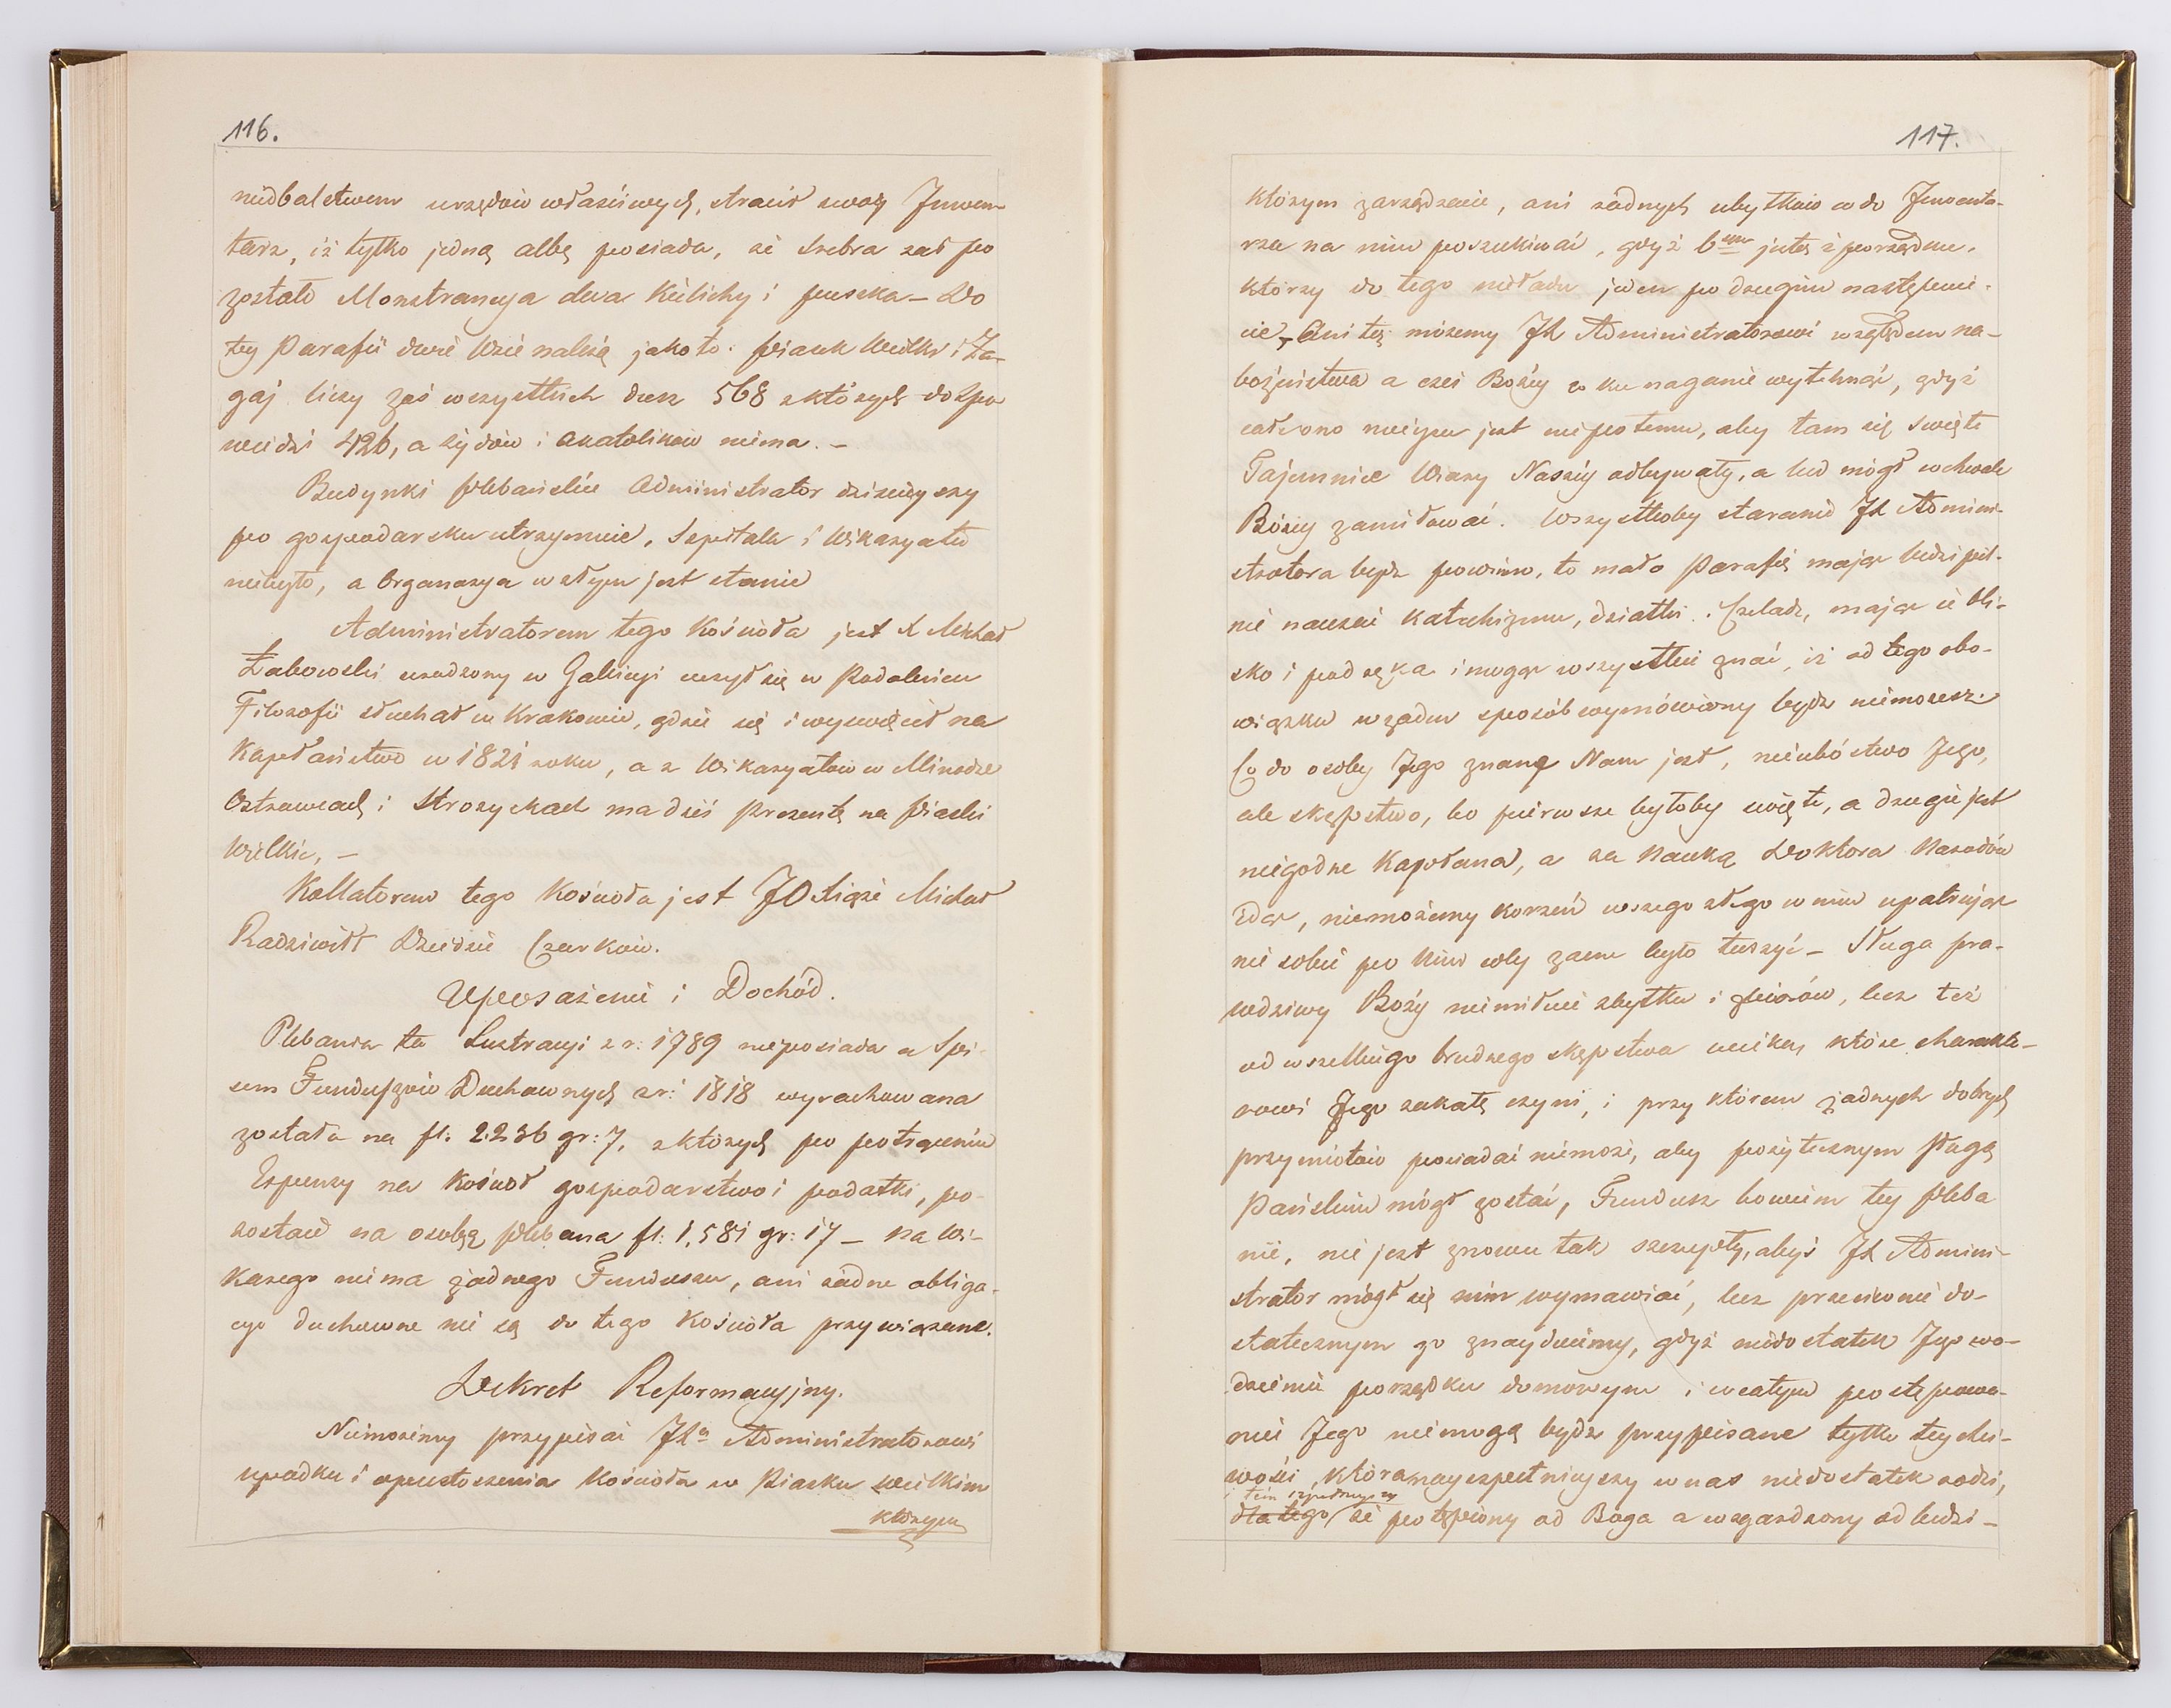 116.
niedbalstwem urzędów właściwych, stracił swoy Inwen
tarz, iż tylko jedną albę posiada, ze srebra zaś po
zostało Monstrancya dwa Kielichy i puszka – Do
tey Parafii dwie Wsie należą jako to: Piasek Wielki i Za-
gaj liczy zaś wszystkich dusz 568 z których do Spo
wiedzi 426, a żydów i akatolików niema. –
Budynki Plebańskie Administrator dzisieyszy
po gospodarsku utrzymuie, Szpitala i Wikaryatu
niebyło, a Organarya w złym jest stanie
Administratorem tego Kościoła jest X Michał
Żabowski urodzony w Galicyi uczył się w Podolińcu
Filozofii słuchał w Krakowie, gdzie się i wyswięcił na
Kapłaństwo w 1821 roku, a z Wikaryatów w Minodze
Ostrowcach i Strożyskach ma dziś prezentę na Piaski
Wielkie, –
Kollatorem tego Kościoła jest JO Xiąże Michał
Radziwiłł Dziedzic Czarkow.
Uposażenie i Dochód.
Plebania ta Lustracyi z r: 1789 nieposiada a Spi-
sem Funduszów Duchownych z r: 1818 wyrachowana
została na fl: 2.236 gr: 7, z których po potrąceniu
Expensy na Kościoł gospodarstwo i podatki, po-
zostaie na osobę Plebana fl: 1,581 gr: 17 – na Wi-
karego niema żadnego Funduszu, ani żadne obliga-
cye duchowne nie są do tego Kościoła przywiązane.
Dekret Reformacyjny.
Niemożemy przypisać JXa Administratorowi
upadku i opustoszenia Kościoła w Piasku Wielkim
którym
117.
którym zarządzaie, ani żadnych ubytków co do Inwenta-
rza na nim poszukiwać, gdyż 6tym jest z porządku,
którzy do tego nieładu jeden po drugim następuie-
cie, Ani też możemy JX Administratorowi względem na-
bożeństwa a czci Bożéy co ku naganie wytchnąć, gdyż
całe ono mieysce jest nie po temu, aby tam się święte
Tajemnice Wiary Naszéy odbywały, a lud mógł w chwale
Bożéy zamiłować. Wszystkoby staranie JX Admini-
stratora bydź powinno, to mało Parafię mając ludzi pil-
nie nauczać katechizmu, dziatki i Czeladź, mając ie bli-
sko i pod ręką i mogąc wszystkie znać, iż od tego obo-
wiązku w żaden sposób wymówiony bydź niemożesz.
Co do osoby Jego znane Nam jest, nieubóstwo Jego,
ale skąpstwo, bo pierwsze byłoby święte, a drugie jest
niegodne Kapłana, a za nauką Doktora Narodów
idąc, niemożemy korzeń wszego złego w nim upatrując
nie sobie po nim coby zacne było tuszyć – Sługa pra-
wdziwy Boży niemiłuie zbytku i zbiorów, lecz też
od wszelkiego brudnego skąpstwa ucieka, które charakte-
rowi Jego zakałę czyni, i przy którem żadnych dobrych
przymiotów posiadać niemoże, aby pożytecznym Sługą
Pańskim mógł zostać, Fundusz bowiem tey Pleba
nii, nie jest znowu tak szczupły, abyś JX Admini-
strator mógł się nim wymawiać, lecz przeciwnie do-
statecznym go znayduiemy, gdyż niedostatek Jego wo-
dzeniu porządku domowym i w całym postępowa-
niu Jego niemogą bydź przypisane tylko tey chci-
wości, która nayszpetnieyszy w nas niedostatek rodzi,
dla tego że potępiony od Boga a wzgardzony od ludzi –